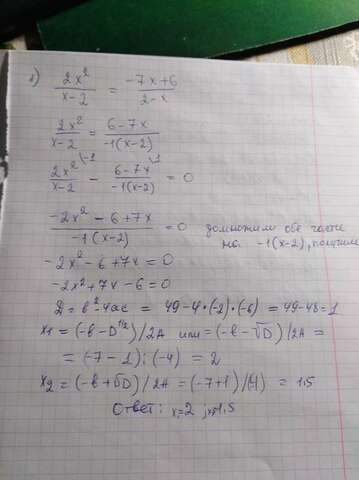 1) 2x²/(x-2) = (-7x+6)/(2-x)
2x²/(x-2) = (6-7x)/(-1(x-2))
2x² \-1/(x-2) - (6-7x) \1/(-1(x-2)) = 0
(-2x²-6+7x)/(-1(x-2)) = 0 домножим обе части
на -1(x-2), получим
-2x²-6+7x=0
-2x²+7x-6=0
D=b²-4ac = 49-4*(-2)*(-6) = 49-48=1
x1=(-b-D^1/2)/2A или =(-b-√D)/2A =
= (-7-1):(-4) = 2
x2=(-b+√D)/2A=(-7+1)/(-4) = 1.5
Ответ: x=2 ; x=1.5